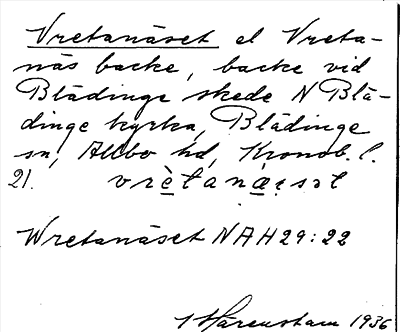 Vretanäset el Vreta-
näs backe, backe vid
Blädinge skede N Blä-
dinge kyrka, Blädinge
sn, Allbo hd, Kronob. l.
21. vrètanæ̣sət
Wretanäset NAH 29:22
Härensham 1936